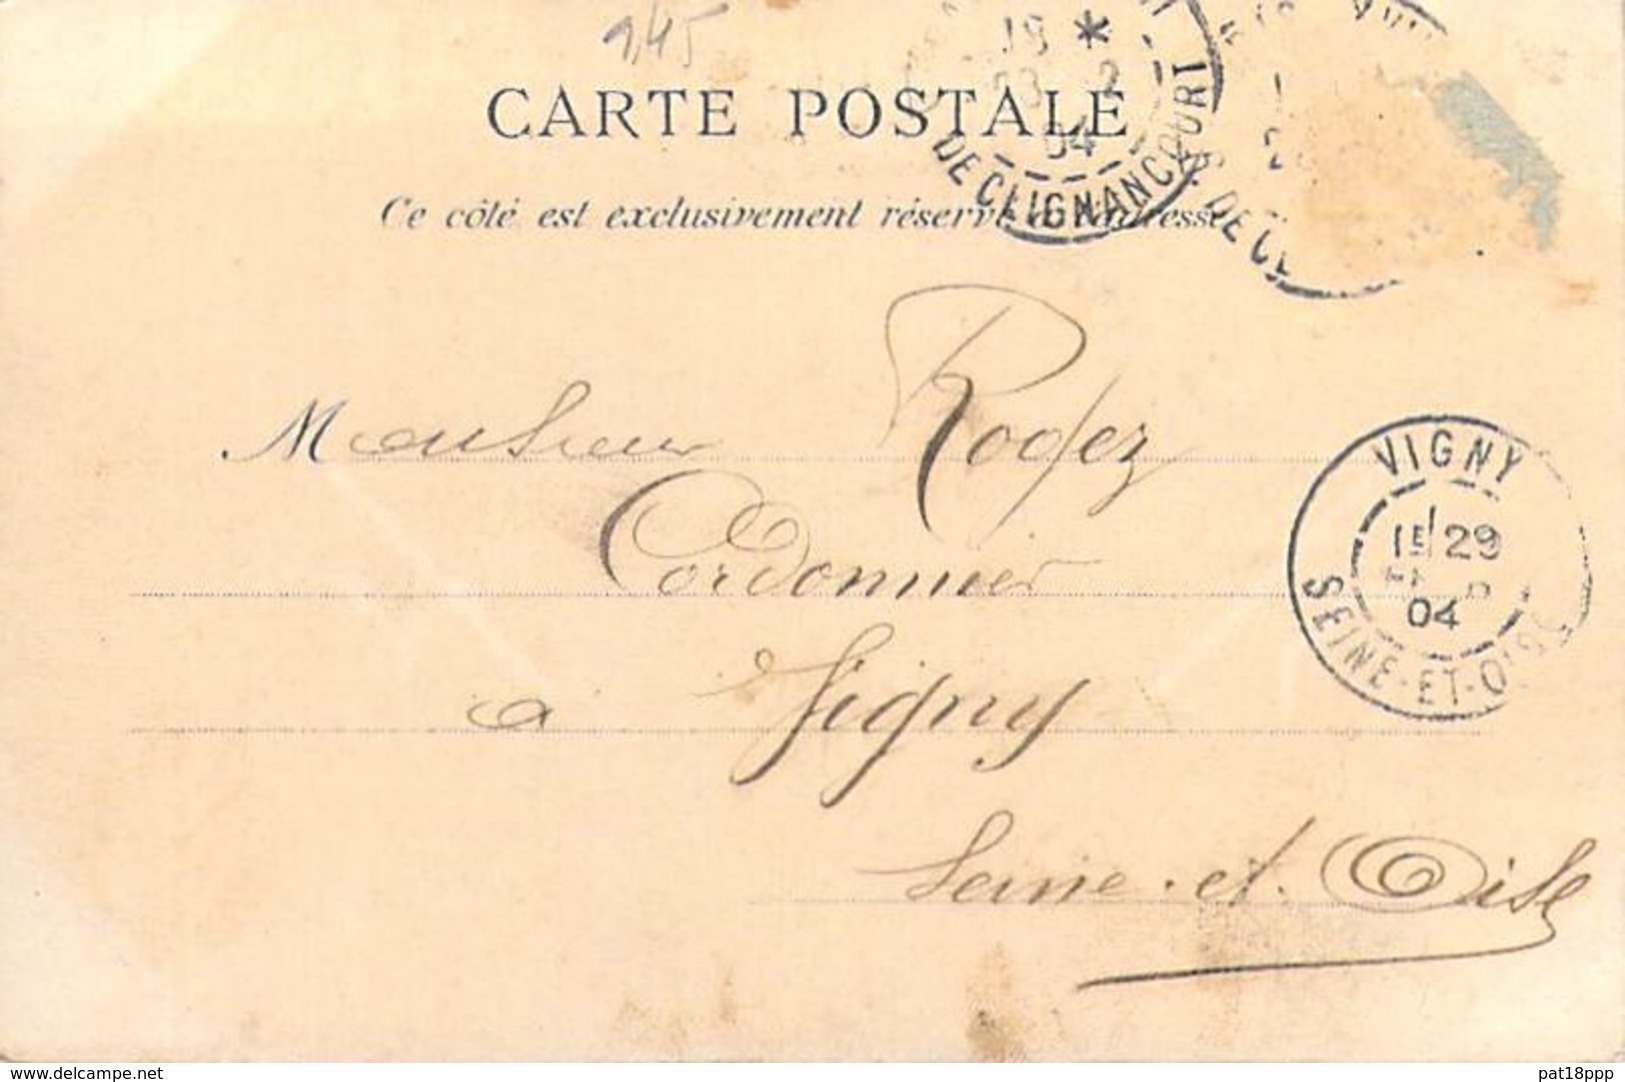 945
CARTE POSTALE
Ce côté est exclusivement réservé à l'adresse
19 *
2
04
DE CLIGNANCOURT
DE CL
Monsieur Rodez
Cordonnier
à Vigny
Seine-et-Oise
VIGNY
1E 29
04
SEINE-ET-OISE
www.delcampe.net
pat18ppp